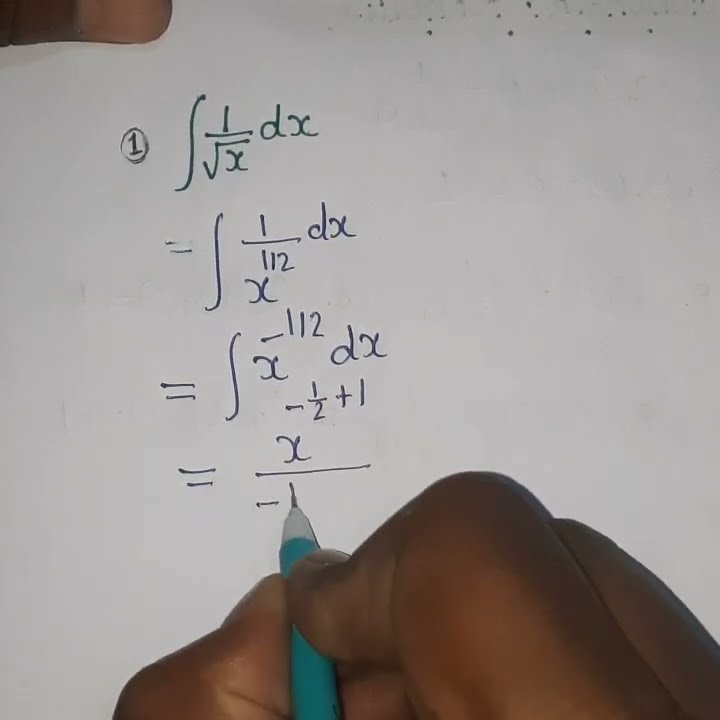 ① ∫ 1/√x dx
= ∫ 1/x^1/2 dx
= ∫ x^-1/2 dx
= x^(-1/2+1)/-1